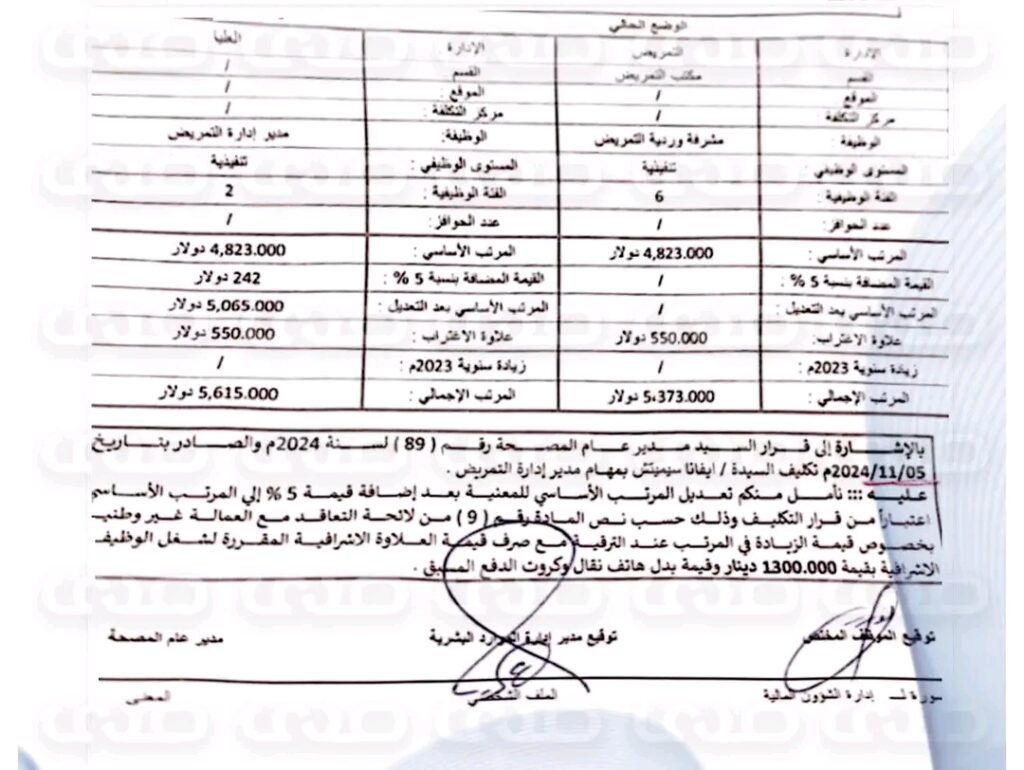 الوضع الحالي
الإدارة التمريض الإدارة العليا
القسم مكتب التمريض القسم /
الموقع : / الموقع : /
مركز التكلفة : / مركز التكلفة : /
الوظيفة : مشرفة وردية التمريض الوظيفة: مدير إدارة التمريض
المستوى الوظيفي : تنفيذية المستوى الوظيفي : تنفيذية
الفئة الوظيفية : 6 الفئة الوظيفية : 2
عدد الحوافز: / عدد الحوافز: /
المرتب الأساسي : 4,823.000 دولار المرتب الأساسي : 4,823.000 دولار
القيمة المضافة بنسبة 5 % : / القيمة المضافة بنسبة 5 % : 242 دولار
المرتب الأساسي بعد التعديل : / المرتب الأساسي بعد التعديل : 5,065.000 دولار
علاوة الاغتراب: 550.000 دولار علاوة الاغتراب : 550.000 دولار
زيادة سنوية 2023م : / زيادة سنوية 2023م : /
المرتب الإجمالي : 5،373.000 دولار المرتب الإجمالي : 5,615.000 دولار
بالإشارة إلى قرار السيد مدير عام المصحة رقم ( 89 ) لسنة 2024م والصادر بتاريخ
2024/11/05م تكليف السيدة / ايفانا سيميتش بمهام مدير إدارة التمريض .
عليه ::: نأمل منكم تعديل المرتب الأساسي للمعنية بعد إضافة قيمة 5 % إلى المرتب الأساسي
اعتباراً من قرار التكليف وذلك حسب نص المادة رقم ( 9 ) من لائحة التعاقد مع العمالة غير وطنية
بخصوص قيمة الزيادة في المرتب عند الترقية مع صرف قيمة العلاوة الاشرافية المقررة لشغل الوظيف
الاشرافية بقيمة 1300.000 دينار وقيمة بدل هاتف نقال وكروت الدفع المسبق .
توقيع الموظف المختص توقيع مدير إدارة الموارد البشرية مدير عام المصحة
صورة لـ إدارة الشؤون المالية الملف الشخصي المعني